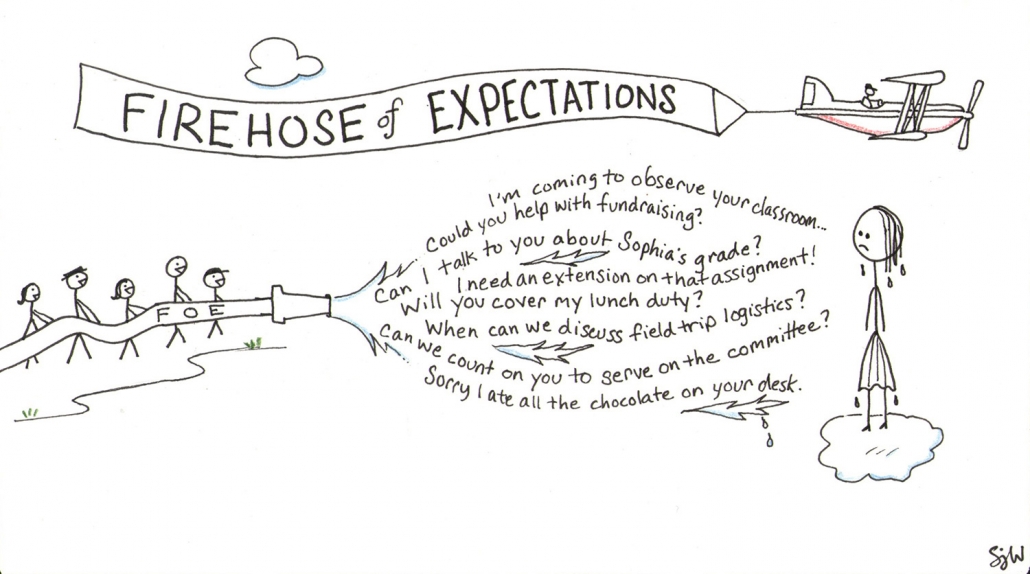 FIREHOSE of EXPECTATIONS
I'm coming to observe your classroom...
Could you help with fundraising?
Can I talk to you about Sophia's grade?
I need an extension on that assignment!
Will you cover my lunch duty?
When can we discuss field trip logistics?
Can we count on you to serve on the committee?
Sorry I ate all the chocolate on your desk.
FOE
SjW